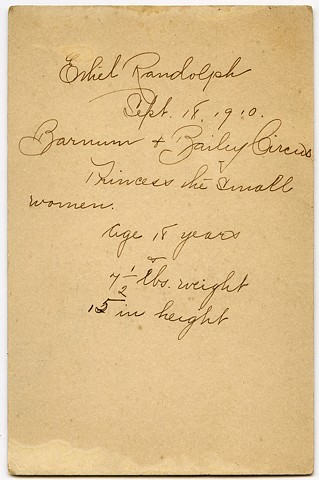 Ethel Randolph
Sept. 18, 1910.
Barnum & Bailey Circus
Princess the Small
women.
age 18 years
&
7 1/2 lbs. weight
15 in height